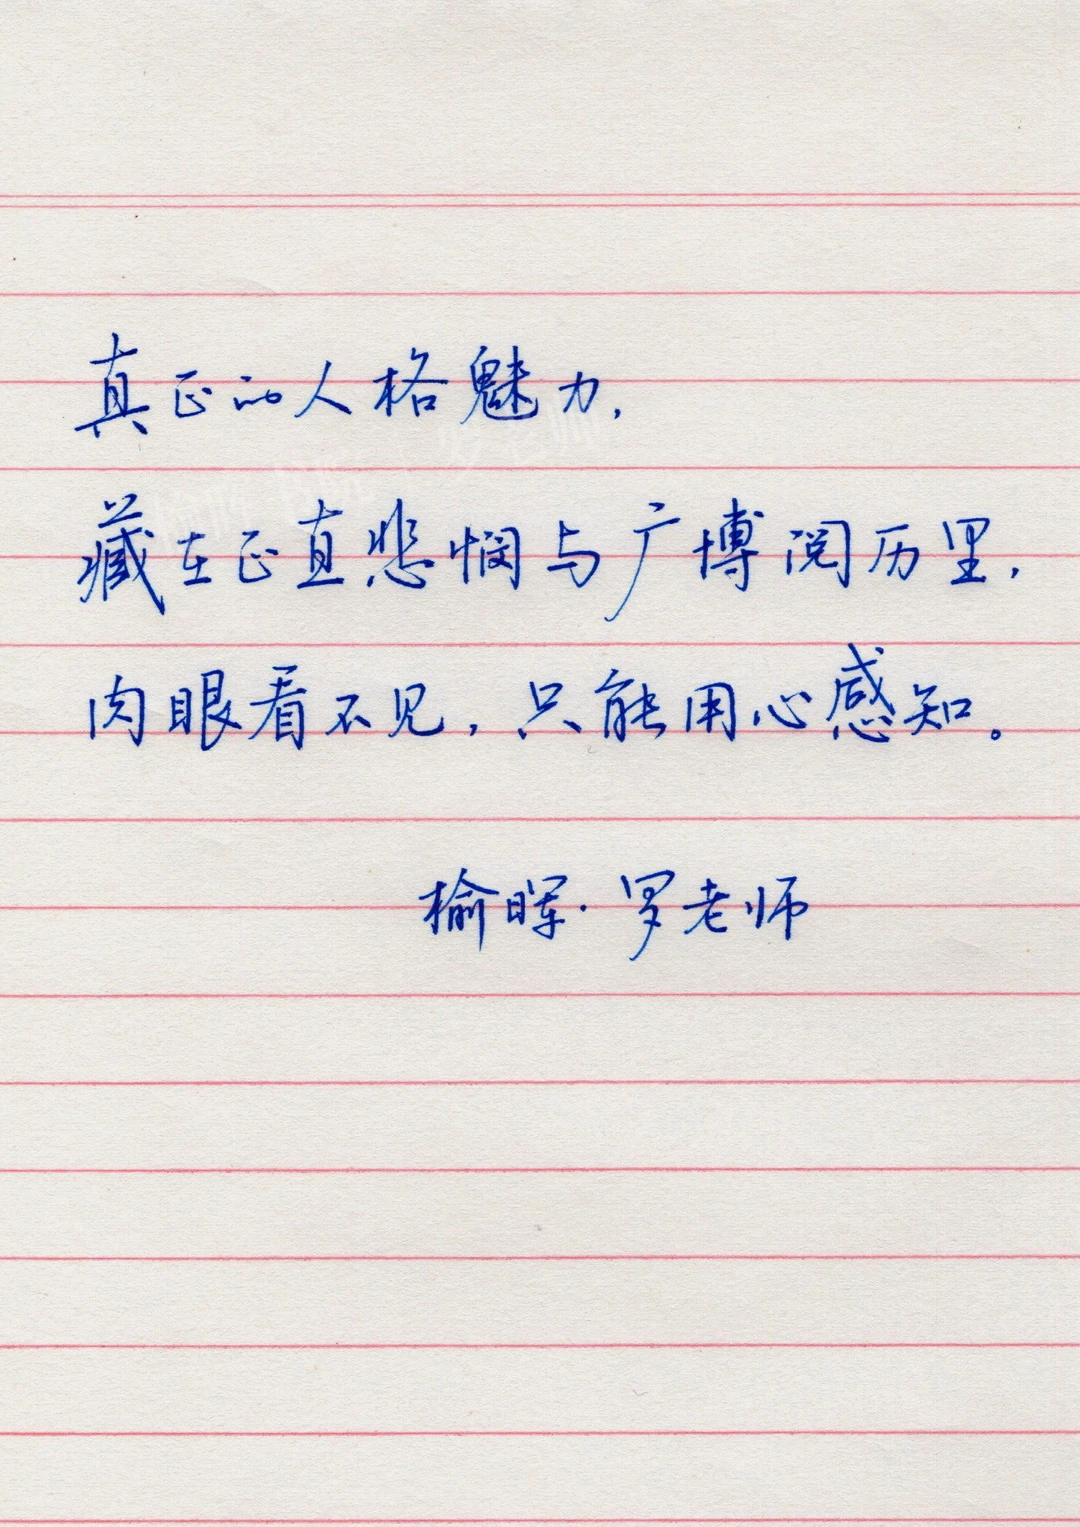 真正的人格魅力,
藏在正直悲悯与广博阅历里,
肉眼看不见,只能用心感知。
榆晖·罗老师